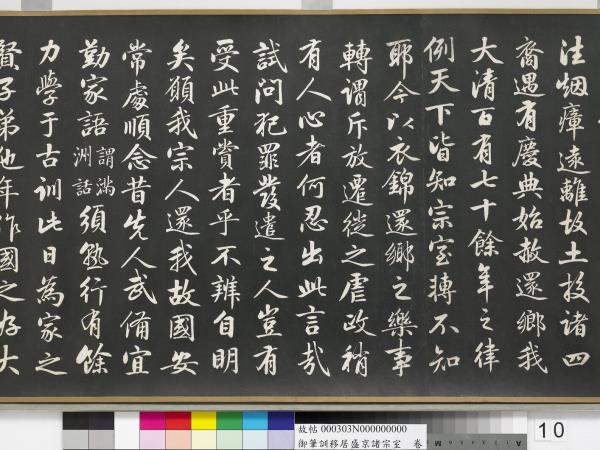 法烟瘴遠離故土投諸四
裔遇有慶典始赦還鄉我
大清百有七十餘年之律
例天下皆知宗室轉不知
耶今以衣錦還鄉之樂事
轉謂斥放遷徙之虐政稍
有人心者何忍出此言哉
試問犯罪發遣之人豈有
受此重賞者乎不辨自明
矣願我宗人還我故國安
常處順念昔先人武備宜
勤家語謂滿洲話須熟行有餘
力學于古訓此日為家之
賢子弟他年作國之大
故帖 000303N000000000
御筆訓移居盛京諸宗室 卷
10